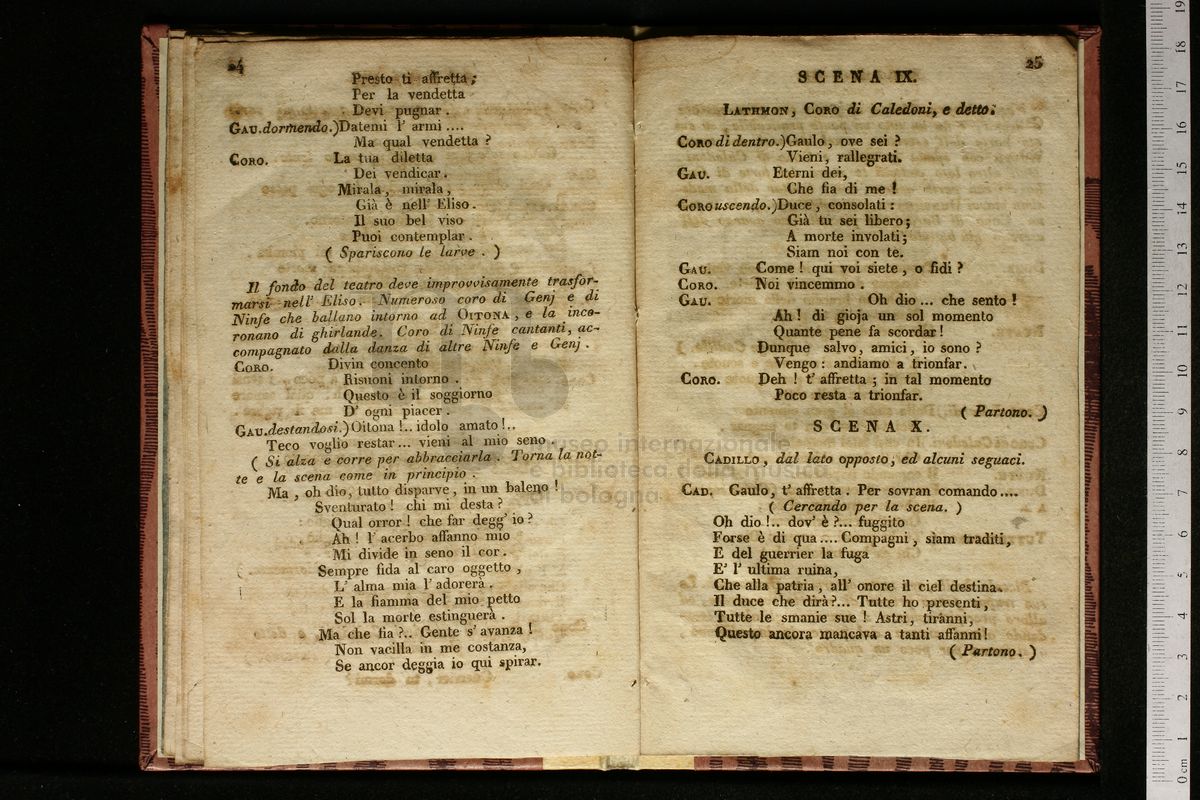 24
Presto ti affretta;
Per la vendetta
Devi pugnar.
GAU. dormendo.) Datemi l' armi ....
Ma qual vendetta ?
CORO. La tua diletta
Dei vendicar.
Mirala, mirala,
Già è nell' Eliso.
Il suo bel viso
Puoi contemplar.
( Spariscono le larve. )
Il fondo del teatro deve improvvisamente trasfor-
marsi nell' Eliso. Numeroso coro di Genj e di
Ninfe che ballano intorno ad OITONA, e la inco-
ronano di ghirlande. Coro di Ninfe cantanti, ac-
compagnato dalla danza di altre Ninfe e Genj.
CORO. Divin concento
Risuoni intorno.
Questo è il soggiorno
D' ogni piacer.
GAU. destandosi.) Oitona !.. idolo amato !..
Teco voglio restar... vieni al mio seno.
( Si alza e corre per abbracciarla. Torna la not-
te e la scena come in principio.
Ma, oh dio, tutto disparve, in un baleno !
Sventurato ! chi mi desta ?
Qual orror ! che far degg' io ?
Ah ! l' acerbo affanno mio
Mi divide in seno il cor.
Sempre fida al caro oggetto,
L' alma mia l' adorerà.
E la fiamma del mio petto
Sol la morte estinguerà.
Ma che fia ?.. Gente s' avanza !
Non vacilla in me costanza,
Se ancor deggia io qui spirar.
25
SCENA IX.
LATHMON, CORO di Caledoni, e detto.
CORO di dentro.) Gaulo, ove sei ?
Vieni, rallegrati.
GAU. Eterni dei,
Che fia di me !
CORO uscendo.) Duce, consolati :
Già tu sei libero;
A morte involati;
Siam noi con te.
GAU. Come ! qui voi siete, o fidi ?
CORO. Noi vincemmo.
GAU. Oh dio ... che sento !
Ah ! di gioja un sol momento
Quante pene fa scordar !
Dunque salvo, amici, io sono ?
Vengo : andiamo a trionfar.
CORO. Deh ! t' affretta ; in tal momento
Poco resta a trionfar.
( Partono. )
SCENA X.
CADILLO, dal lato opposto, ed alcuni seguaci.
CAD. Gaulo, t' affretta. Per sovran comando....
( Cercando per la scena. )
Oh dio !.. dov' è ?... fuggito
Forse è di qua .... Compagni, siam traditi,
E del guerrier la fuga
E' l' ultima ruina,
Che alla patria, all' onore il ciel destina.
Il duce che dirà ?... Tutte ho presenti,
Tutte le smanie sue ! Astri, tiranni,
Questo ancora mancava a tanti affanni !
( Partono. )
museo internazionale
e biblioteca della musica
di bologna
0 cm 1 2 3 4 5 6 7 8 9 10 11 12 13 14 15 16 17 18 19